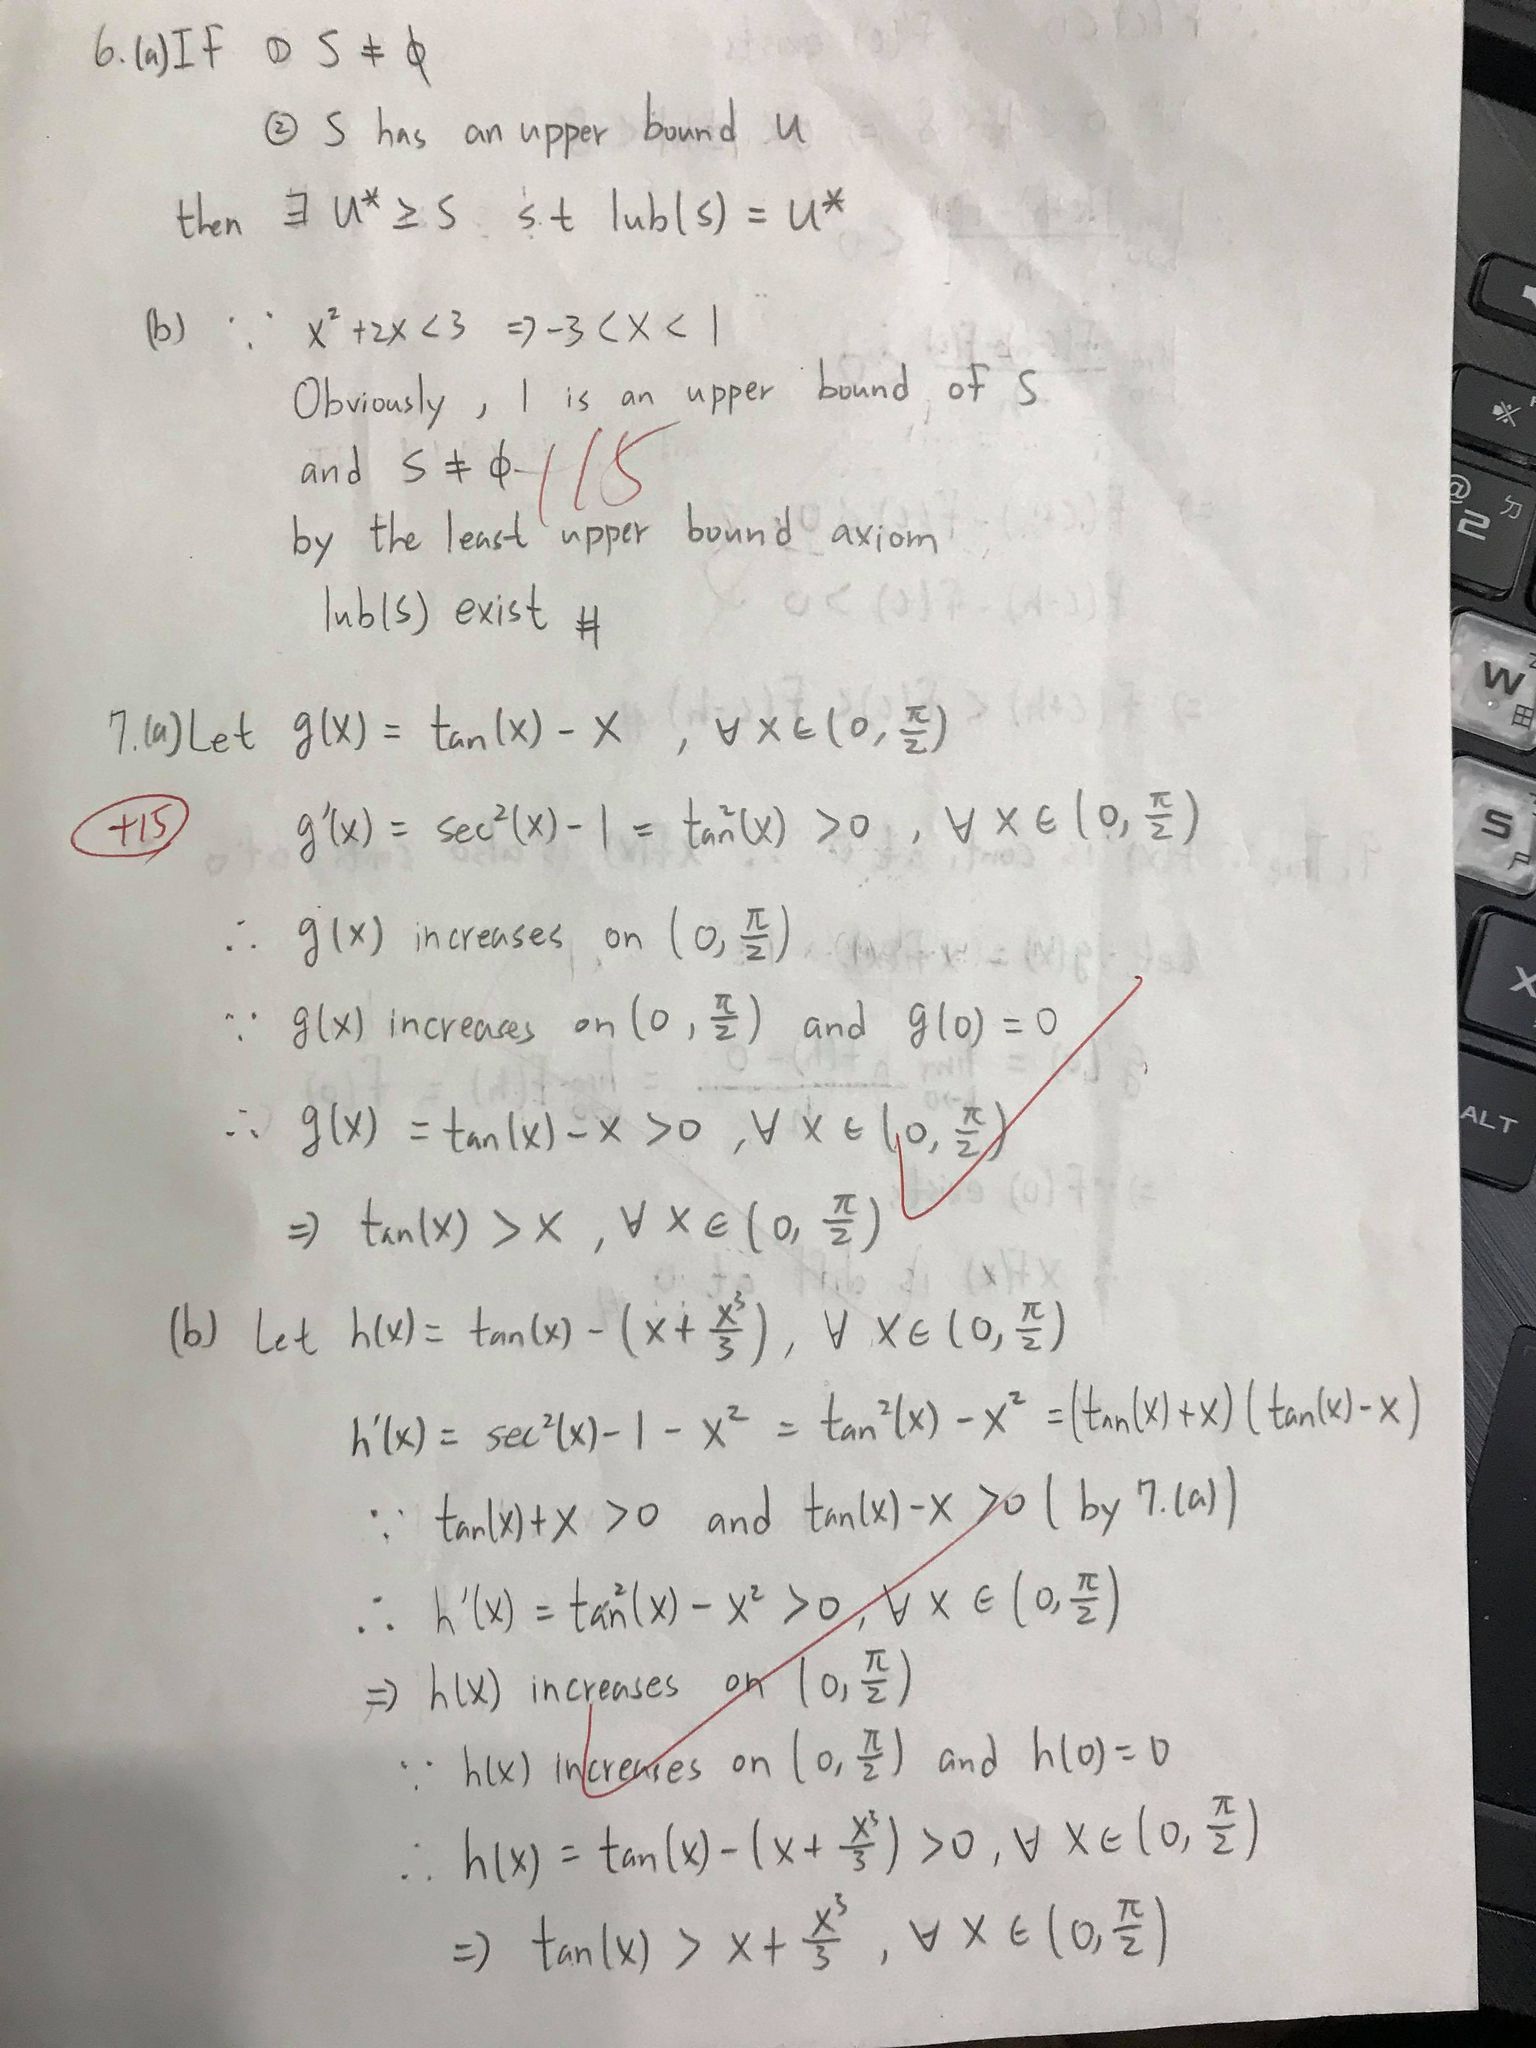 6.(a) If ① S ≠ ϕ
② S has an upper bound u
then ∃ u* ≥ S s.t lub(S) = u*
(b) ∵ x² + 2x < 3 ⇒ -3 < x < 1
Obviously, 1 is an upper bound of S
and S ≠ ϕ
by the least upper bound axiom
lub(S) exist #
7.(a) Let g(x) = tan(x) - x , ∀ x ∈ (0, π/2)
+15
g'(x) = sec²(x) - 1 = tan²(x) > 0 , ∀ x ∈ (0, π/2)
∴ g(x) increases on (0, π/2)
∵ g(x) increases on (0, π/2) and g(0) = 0
∴ g(x) = tan(x) - x > 0 , ∀ x ∈ (0, π/2)
⇒ tan(x) > x , ∀ x ∈ (0, π/2)
(b) Let h(x) = tan(x) - (x + x³/3) , ∀ x ∈ (0, π/2)
h'(x) = sec²(x) - 1 - x² = tan²(x) - x² = (tan(x) + x)(tan(x) - x)
∵ tan(x) + x > 0 and tan(x) - x > 0 (by 7.(a))
∴ h'(x) = tan²(x) - x² > 0 , ∀ x ∈ (0, π/2)
⇒ h(x) increases on (0, π/2)
∵ h(x) increases on (0, π/2) and h(0) = 0
∴ h(x) = tan(x) - (x + x³/3) > 0 , ∀ x ∈ (0, π/2)
⇒ tan(x) > x + x³/3 , ∀ x ∈ (0, π/2)
@
2
ㄉ
W
田
S
尸
X
ALT